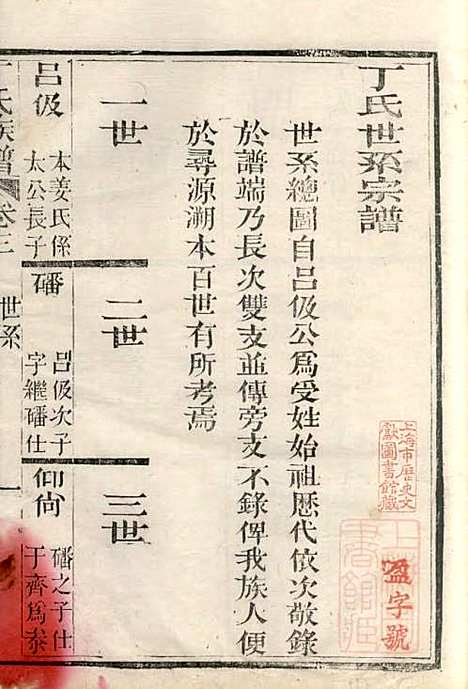 丁氏世系宗譜
世系總圖自呂伋公爲受姓始祖歷代依次敬錄
於譜端乃長次雙支並傳旁支不錄俾我族人便
於尋源溯本百世有所考焉
一世
二世
三世
呂伋
本姜氏係
太公長子
磻
呂伋次子
字繼磻仕
仰尙
磻之子仕
于齊爲泰
丁氏族譜
卷三
世系
一
上海市歷史文
獻圖書館藏
盈字號